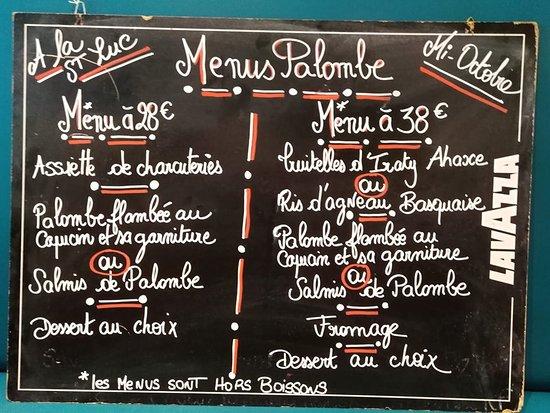 A la
St Luc
Menus Palombe
Mi-Octobre
Menu* à 28€
Assiette de charcuteries
Palombe flambée au
Capucin et sa garniture
ou
Salmis de Palombe
Dessert au choix
Menu* à 38€
Truitelles d'Iraty Ahaxce
ou
Ris d'agneau Basquaise
Palombe flambée au
Capucin et sa garniture
ou
Salmis de Palombe
Fromage
Dessert au choix
LAVAZZA
*les MENUS SONT HORS BOISSONS